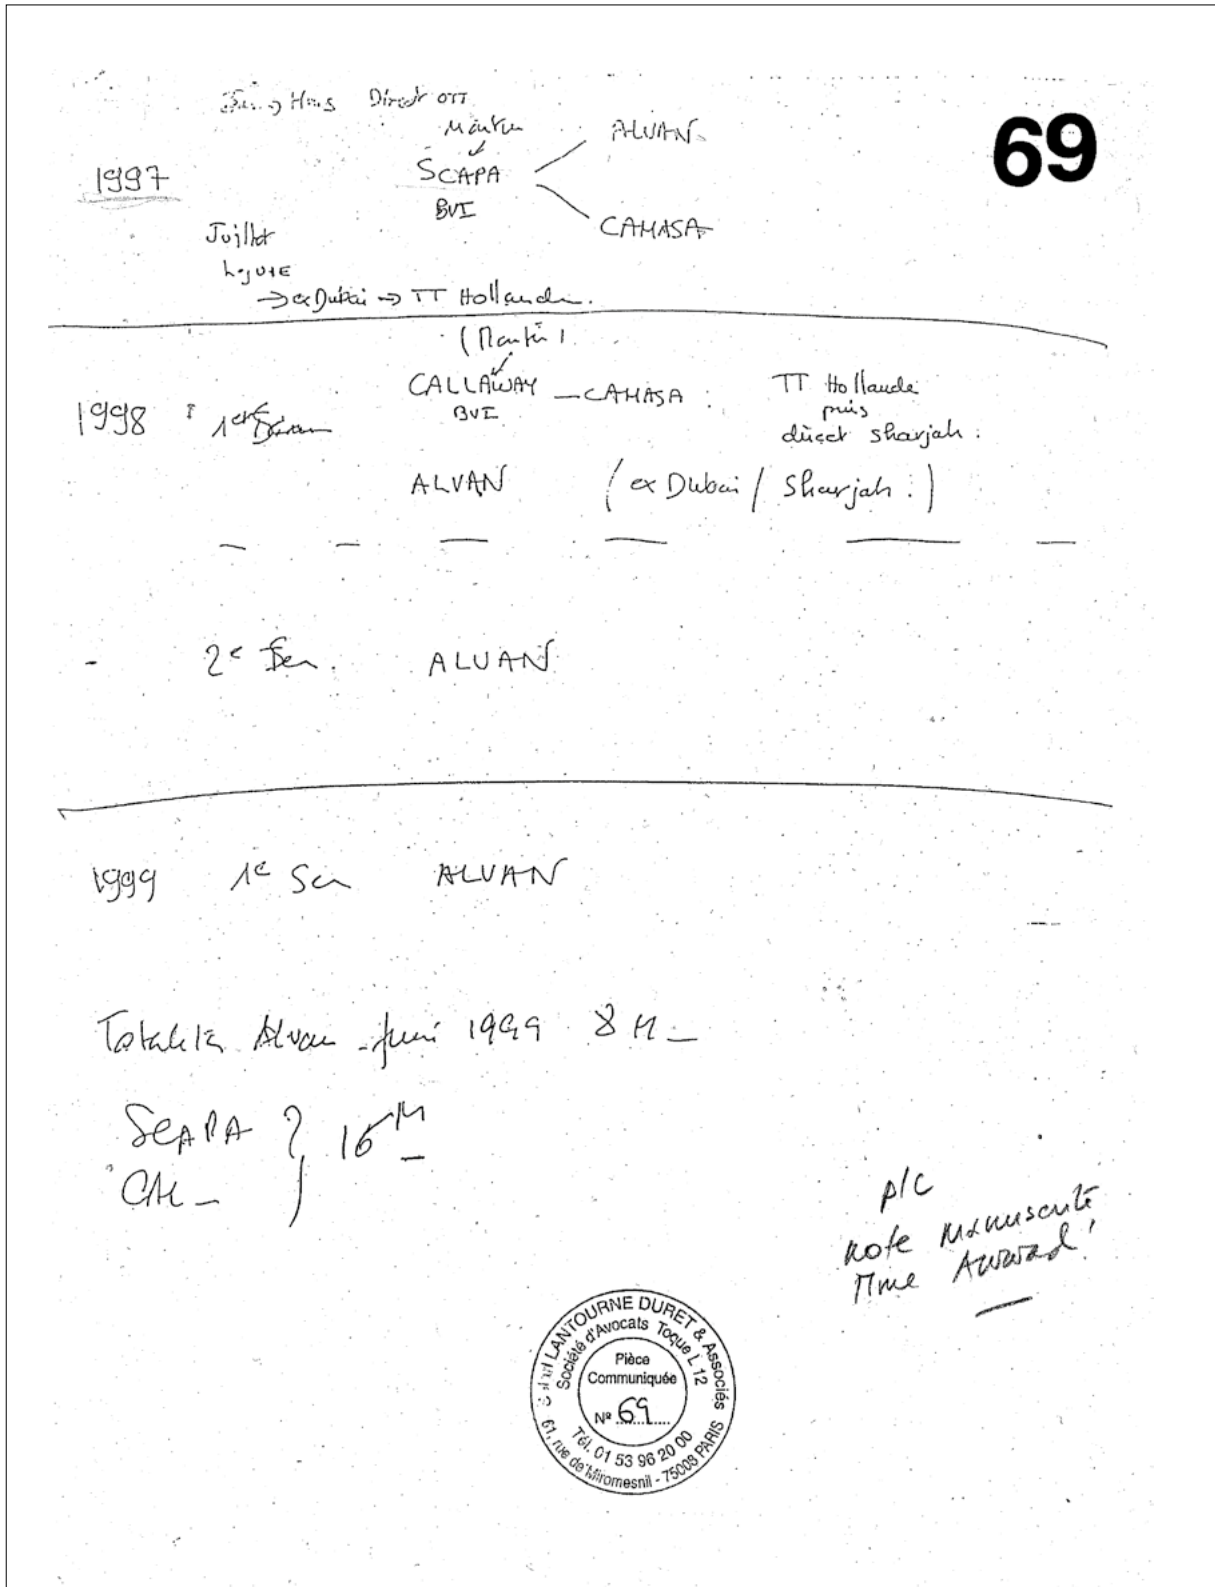 69
Direct OTT
ALVAN
1997
SCAPA
BVI
CAMASA
Juillet
→ ex Dubai → TT Hollande.
CALLAWAY — CAMASA :
BVI
TT Hollande
puis
direct sharjah :
1998 : 1er
ALVAN (ex Dubai / Sharjah :)
- 2e Sem. ALVAN
1999 1e Sem ALVAN
Alvan Juin 1999 8 M
SCAPA
16 M
p/c
note manuscrite
Mme Awwad !
LANTOURNE DURET & Associés
Société d'Avocats Toque L 12
Pièce
Communiquée
Nº 69
Tél. 01 53 96 20 00
61, rue de Miromesnil - 75008 PARIS